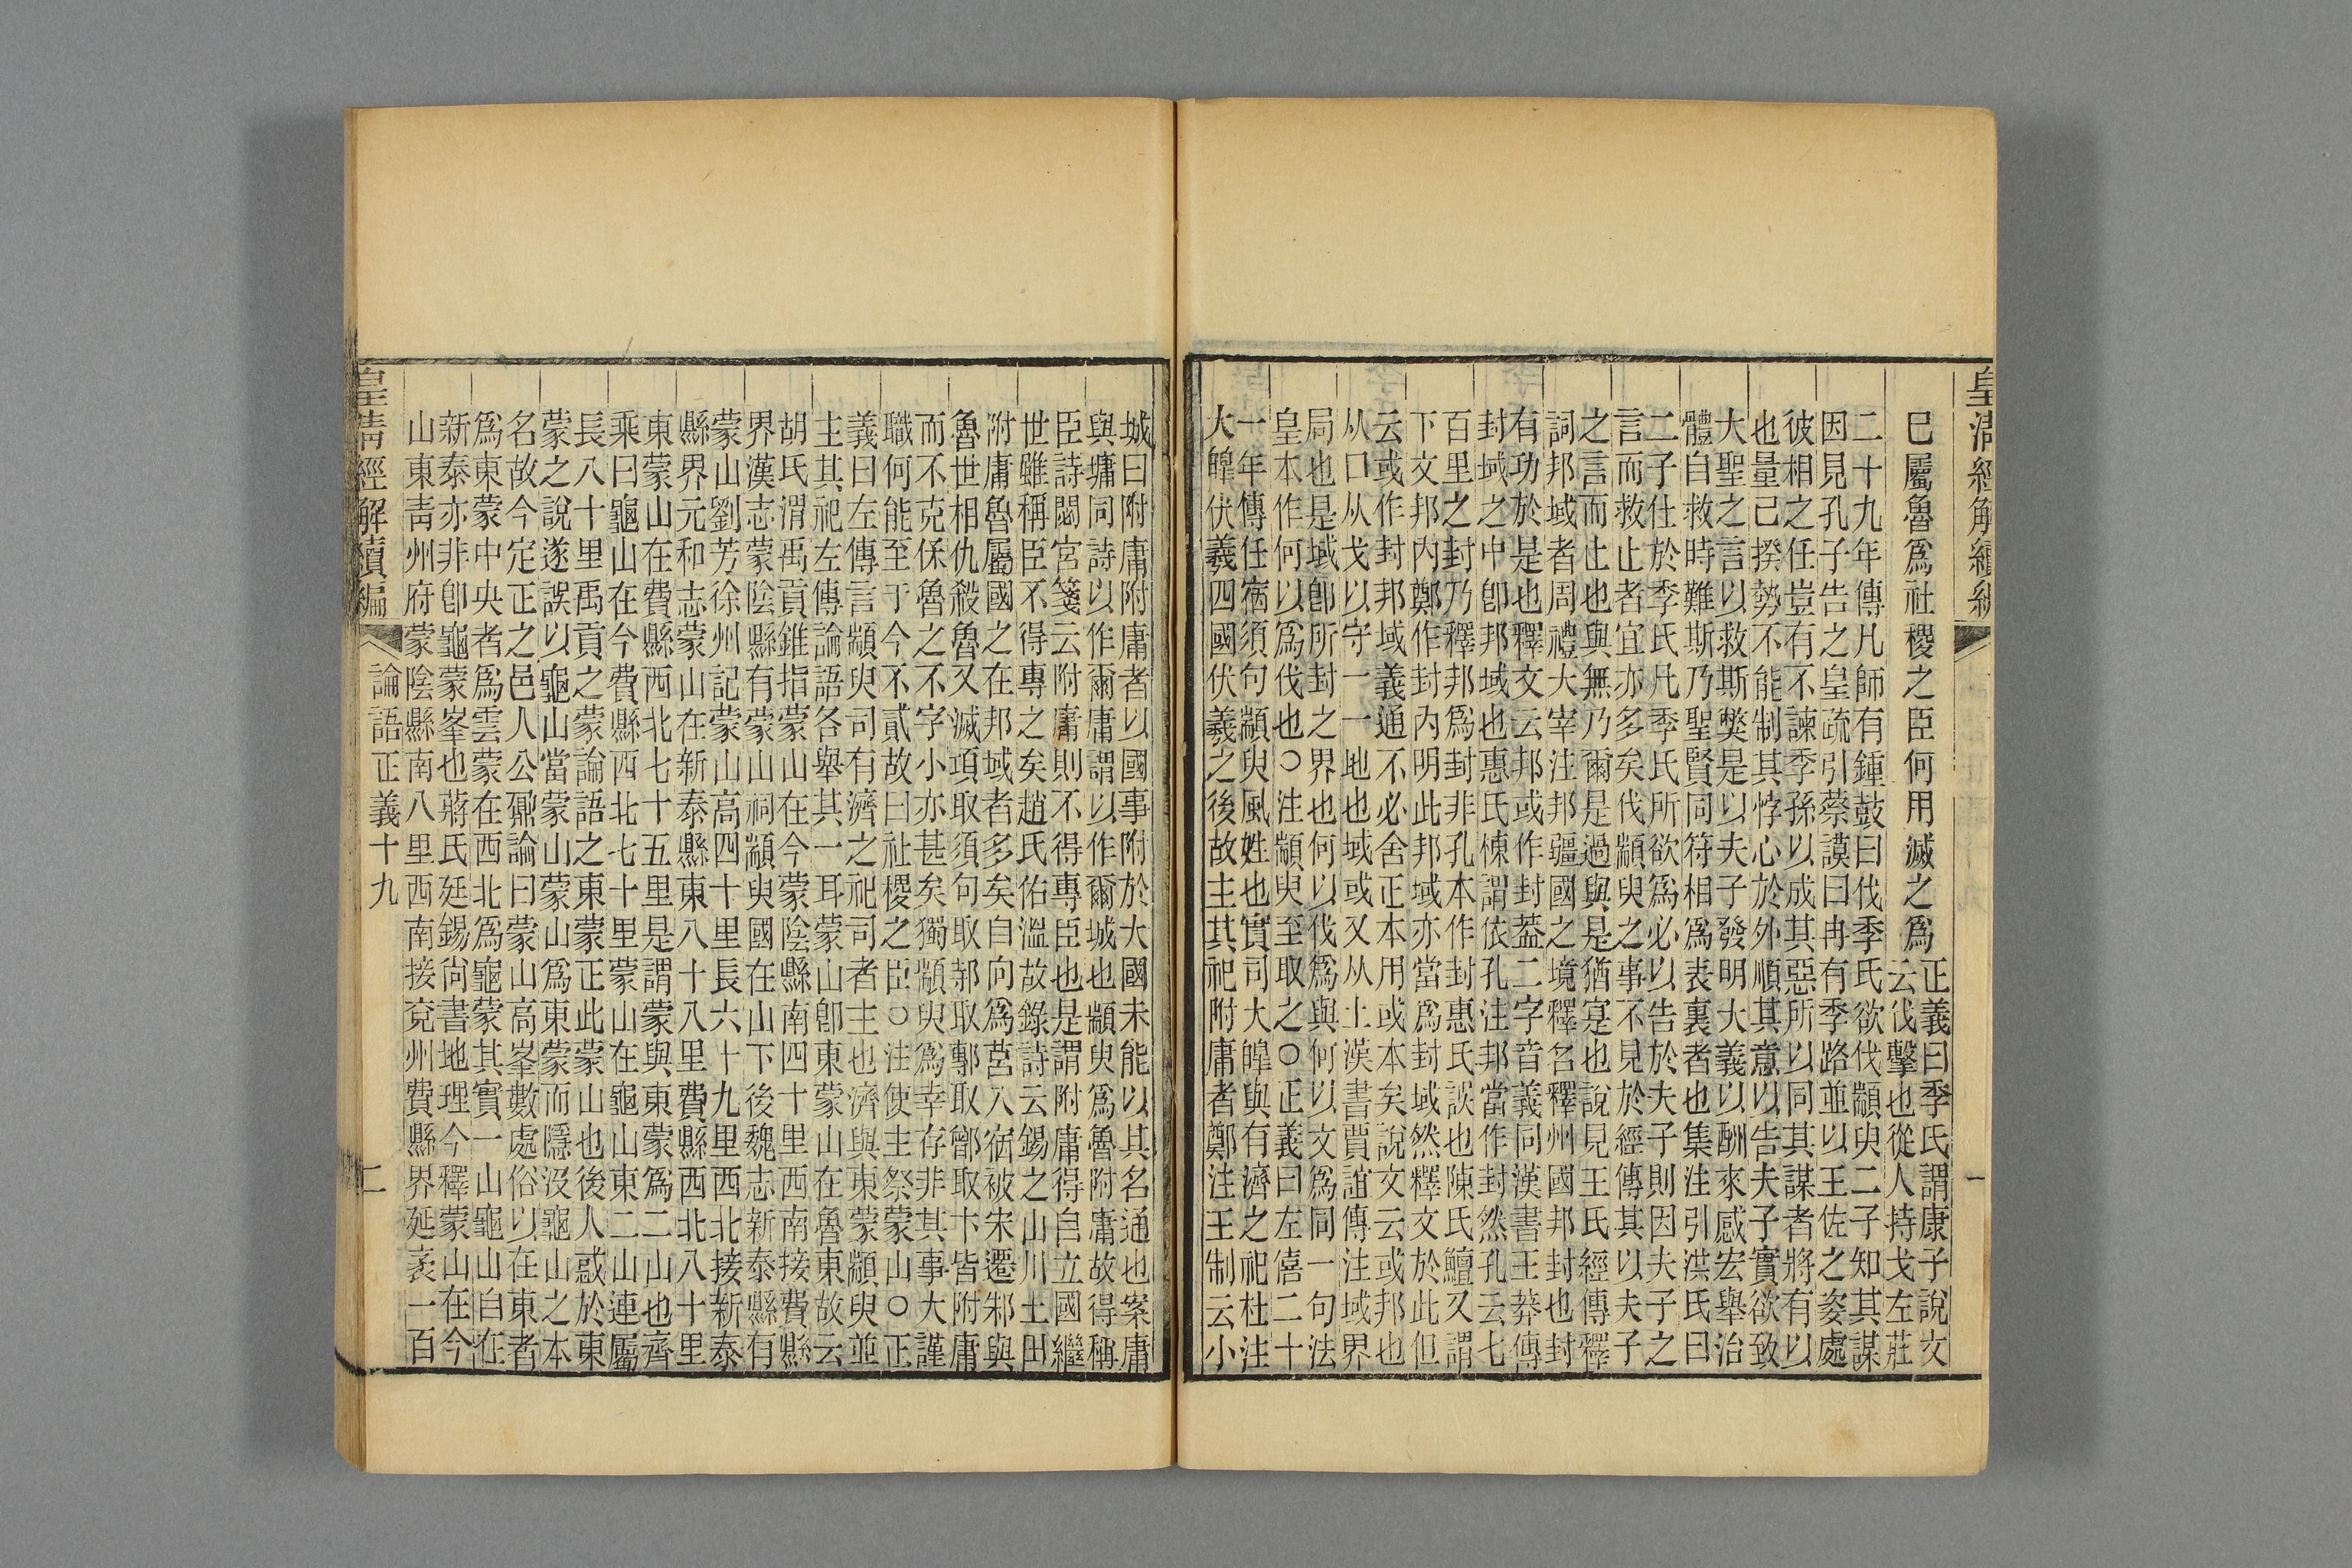 皇清經解續編
一
已屬魯爲社稷之臣何用滅之爲
正義曰季氏謂康子說文
云伐擊也從人持戈左莊
二十九年傳凡師有鍾鼓曰伐季氏欲伐顓臾二子知其謀
因見孔子告之皇疏引蔡謨曰冉有季路並以王佐之姿處
彼相之任豈有不諫季孫以成其惡所以同其謀者將有以
也量己揆勢不能制其悖心於外順其意以告夫子實欲致
大聖之言以救斯弊是以夫子發明大義以酬來感宏舉治
體自救時難斯乃聖賢同符相爲表裏者也集注引洪氏曰
二子仕於季氏凡季氏所欲爲必以告於夫子則因夫子之
言而救止者宜亦多矣伐顓臾之事不見於經傳其以夫子
之言而止也與無乃爾是過與是猶寔也說見王氏經傳釋
詞邦域者周禮大宰注邦疆國之境釋名釋州國邦封也封
有功於是也釋文云邦或作封蓋二字音義同漢書王莽傳
封域之中卽邦域也惠氏棟謂依孔注邦當作封然孔云七
百里之封乃釋邦爲封非孔本作封惠氏誤也陳氏鱣又謂
下文邦內鄭作封內明此邦域亦當爲封域然釋文於此但
云或作封邦域義通不必舍正本用或本矣說文云或邦也
从口从戈以守一一地也域或又从土漢書賈誼傳注域界
局也是域卽所封之界也何以伐爲與何以文爲同一句法
皇本作何以爲伐也○注顓臾至取之○正義曰左僖二十
一年傳任宿須句顓臾風姓也實司大皞與有濟之祀杜注
大皞伏羲四國伏羲之後故主其祀附庸者鄭注王制云小
城曰附庸附庸者以國事附於大國未能以其名通也案庸
與墉同詩以作爾庸謂以作爾城也顓臾爲魯附庸故得稱
臣詩閟宮箋云附庸則不得專臣也是謂附庸得自立國繼
世雖稱臣不得專之矣趙氏佑溫故錄詩云錫之山川土田
附庸魯屬國之在邦域者多矣自向爲莒入宿被宋遷邾與
魯世相仇殺魯又滅項取須句取邿取鄟取鄫取卞皆附庸
而不克保魯之不字小亦甚矣獨顓臾爲幸存非其事大謹
職何能至于今不貳故曰社稷之臣○注使主祭蒙山○正
義曰左傳言顓臾司有濟之祀司者主也濟與東蒙顓臾並
主其祀左傳論語各舉其一耳蒙山卽東蒙山在魯東故云
胡氏渭禹貢錐指蒙山在今蒙陰縣南四十里西南接費縣
界漢志蒙陰縣有蒙山祠顓臾國在山下後魏志新泰縣有
蒙山劉芳徐州記蒙山高四十里長六十九里西北接新泰
縣界元和志蒙山在新泰縣東八十八里費縣西北八十里
東蒙山在費縣西北七十五里是謂蒙與東蒙爲二山也齊
乘曰龜山在今費縣西北七十里蒙山在龜山東二山連屬
長八十里禹貢之蒙論語之東蒙正此蒙山也後人惑於東
蒙之說遂誤以龜山當蒙山蒙山爲東蒙而隱沒龜山之本
名故今定正之邑人公鼐論曰蒙山高峯數處俗以在東者
爲東蒙中央者爲雲蒙在西北爲龜蒙其實一山龜山自在
新泰亦非卽龜蒙峯也蔣氏廷錫尚書地理今釋蒙山在今
山東青州府蒙陰縣南八里西南接兗州費縣界延袤一百
皇清經解續編
論語正義十九
二